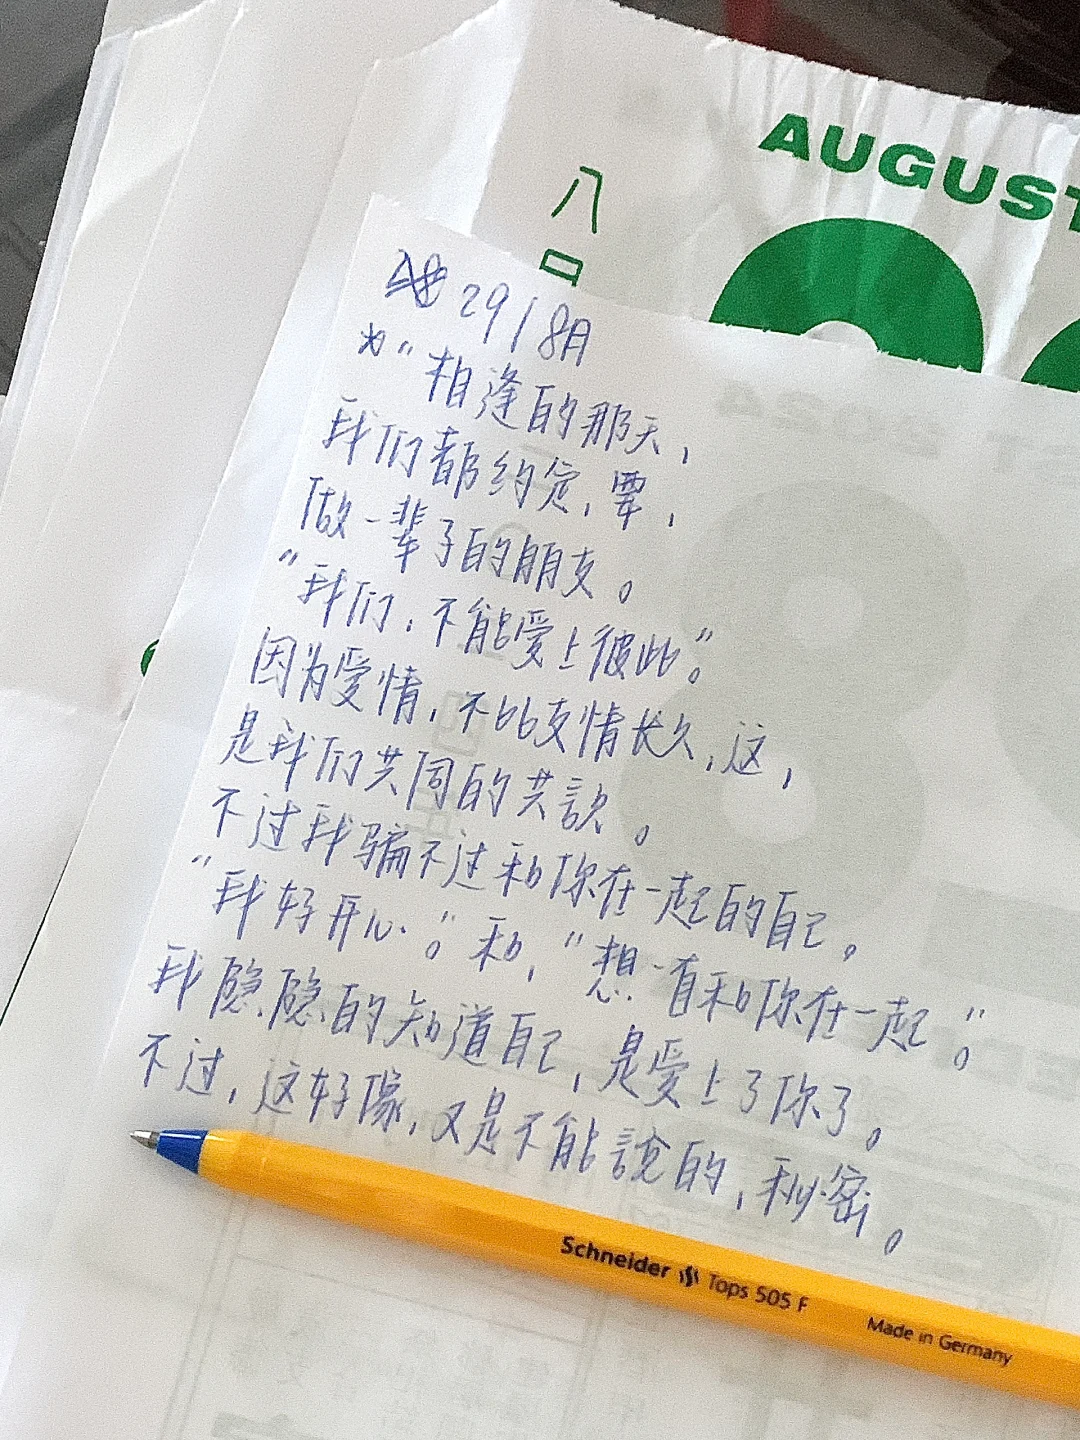 AUGUST
八
月
29/8月
*"相逢的那天,
我们都约定,要,
做一辈子的朋友。
"我们,不能爱上彼此。"
因为爱情,不比友情长久,这,
是我们共同的共識。
不过我骗不过和你在一起的自己。
"我好开心。"和,"想一直和你在一起。"
我隐隐的知道自己,是爱上了你了。
不过,这好像,又是不能說的,秘密。
Schneider Tops 505 F Made in Germany